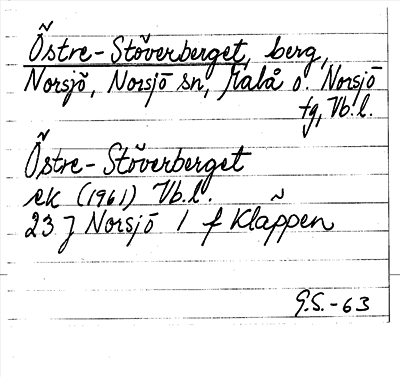 Östre-Stöverberget, berg,
Norsjö, Norsjö sn, Malå o. Norsjö
tg, Vb.l.
Östre-Stöverberget
ek (1961) Vb.l.
23 J Norsjö 1 f Kläppen
G.S.-63